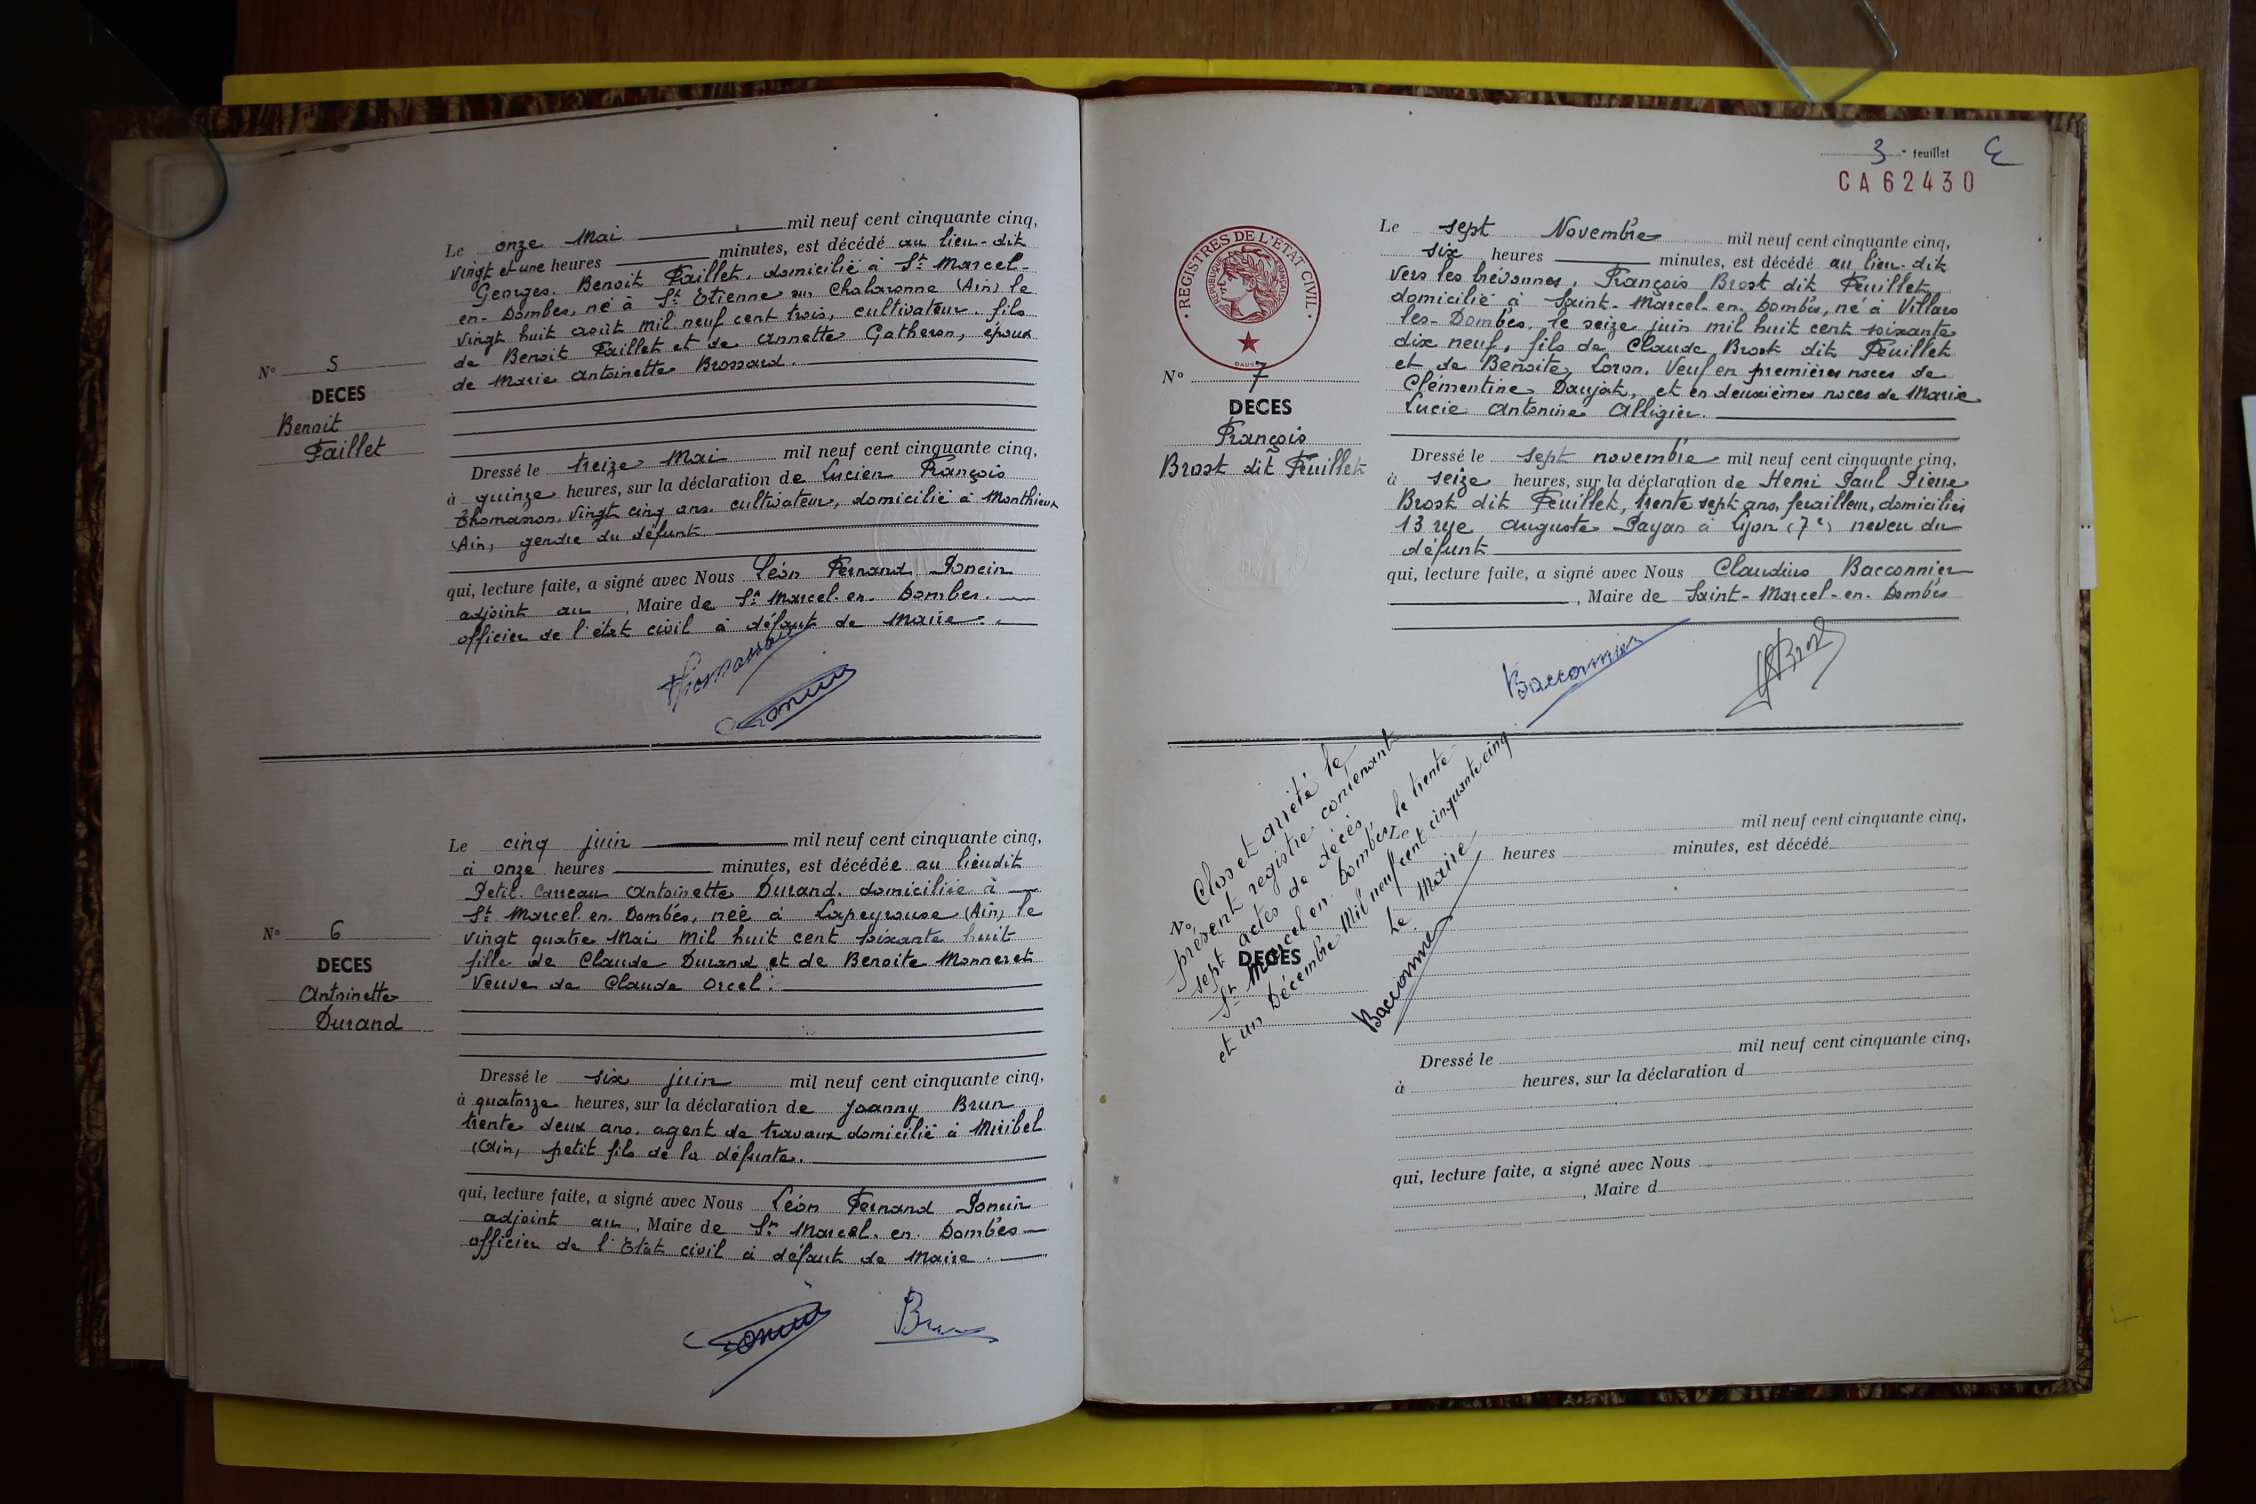 Le onze Mai mil neuf cent cinquante cinq,
vingt et une heures minutes, est décédé au lieu-dit
Georges. Benoit Faillet, domicilié à St Marcel-
en-Dombes, né à St Etienne sur Chalaronne (Ain) le
vingt huit août mil neuf cent trois, cultivateur. fils
de Benoit Faillet et de Annette Gatheron, époux
de Marie Antoinette Brossard.
N° 5
DECES
Benoit
Faillet
Dressé le treize Mai mil neuf cent cinquante cinq,
à quinze heures, sur la déclaration de Lucien François
Thomasson, vingt cinq ans. cultivateur, domicilié à Monthieux
(Ain, gendre du défunt.
qui, lecture faite, a signé avec Nous Léon Fernand Poncin
adjoint au , Maire de St Marcel-en-Dombes.
officier de l'état civil à défaut de Maire.
Thomasson
Poncin
Le cinq juin mil neuf cent cinquante cinq,
à onze heures minutes, est décédée au lieudit
Petit Carreau Antoinette Durand. domiciliée à
St Marcel en Dombes, née à Lapeyrouse (Ain) le
vingt quatre Mai mil huit cent soixante huit
fille de Claude Durand et de Benoite Monneret
Veuve de Claude Orcel.
N° 6
DECES
Antoinette
Durand
Dressé le six juin mil neuf cent cinquante cinq,
à quatorze heures, sur la déclaration de Joanny Brun
trente deux ans. agent de travaux domicilié à Miribel
(Ain, petit fils de la défunte.
qui, lecture faite, a signé avec Nous Léon Fernand Poncin
adjoint au , Maire de St Marcel. en. Dombes
officier de l'Etat civil à défaut de Maire.
Poncin
Brun
3e feuillet
CA62430
REGISTRES DE L'ETAT CIVIL
REPUBLIQUE FRANÇAISE
Le sept Novembre mil neuf cent cinquante cinq,
six heures minutes, est décédé au lieu-dit
vers les brévonnes, François Brost dit Feuillet
domicilié à Saint-Marcel-en-Dombes, né à Villars
les-Dombes, le seize juin mil huit cent soixante
dix neuf, fils de Claude Brost dit Feuillet
et de Benoite Loron. Veuf en premières noces de
Clémentine Daujat, et en deuxièmes noces de Marie
Lucie Antonine Alligier.
N° 7
DECES
François
Brost dit Feuillet
Dressé le sept novembre mil neuf cent cinquante cinq,
à seize heures, sur la déclaration de Henri Paul Pierre
Brost dit Feuillet, trente sept ans, ferailleur, domicilié
13 rue Auguste Payan à Lyon (7e) neveu du
défunt
qui, lecture faite, a signé avec Nous Claudius Bacconnier
, Maire de Saint-Marcel-en-Dombes
Bacconnier
Brost
Clos et arrêté le
présent registre contenant
sept actes de décès
St Marcel en Dombes, le trente
et un Décembre Mil neuf cent cinquante cinq
Le Maire
Bacconnier
N°
DECES
Le mil neuf cent cinquante cinq,
heures minutes, est décédé
Dressé le mil neuf cent cinquante cinq,
à heures, sur la déclaration d
qui, lecture faite, a signé avec Nous
, Maire d